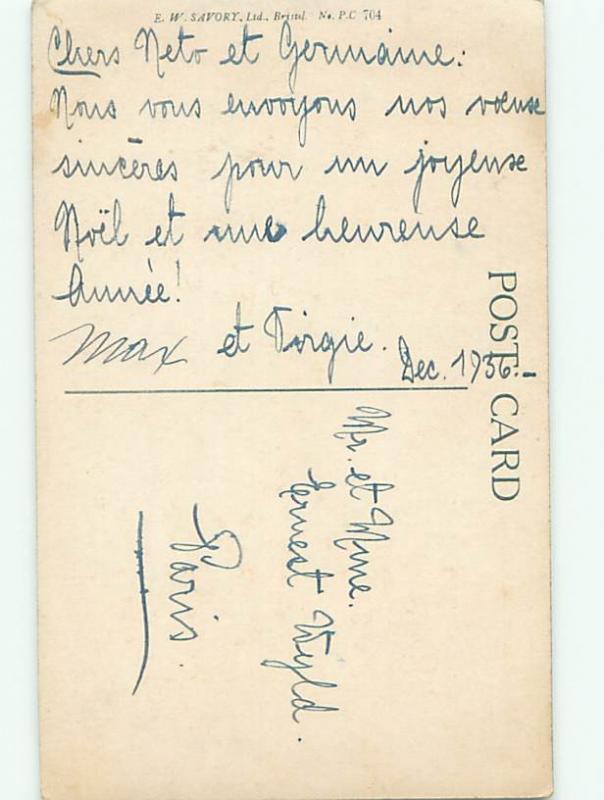 E. W. SAVORY, Ltd., Bristol. No. P.C 704
Chers Neto et Germaine:
Nous vous envoyons nos voeuse
sincères pour un joyeuse
Noël et une heureuse
Année!
Max et Virgie.
Dec. 1936.-
POST CARD
Mr. et Mme.
Ernest Wyld.
Paris.